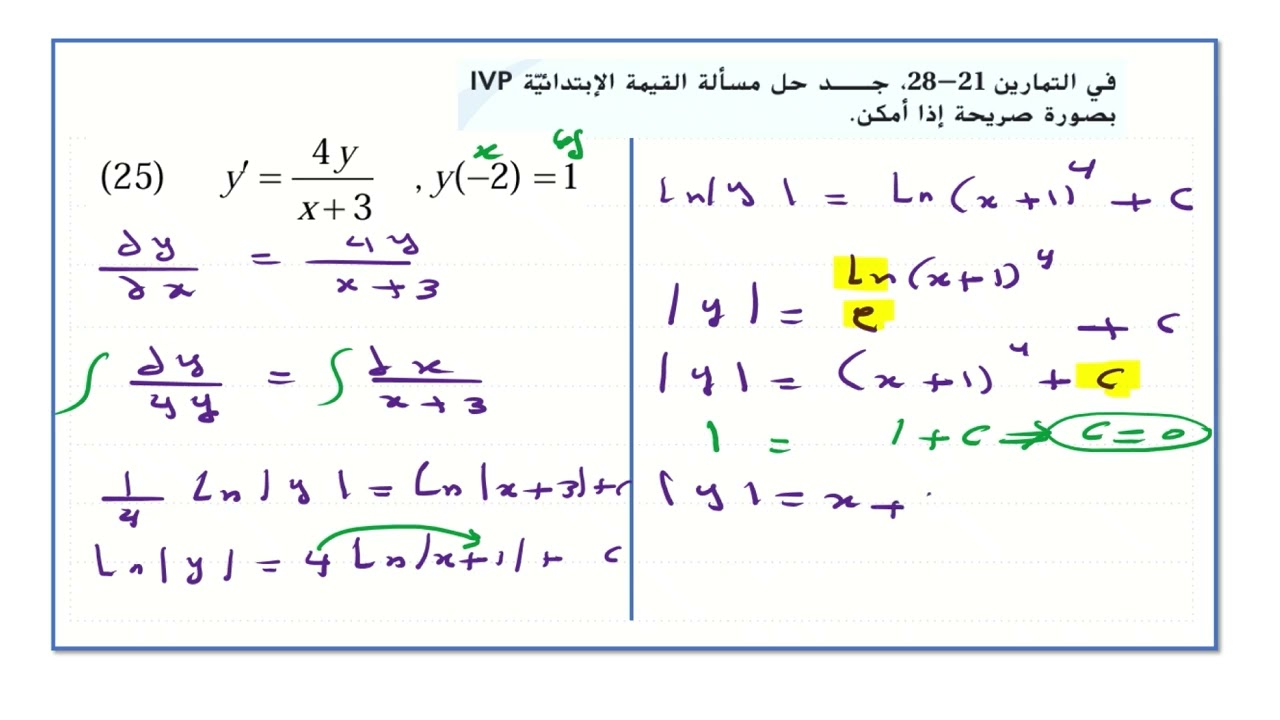 في التمارين 21–28، جـــد حل مسألة القيمة الإبتدائيّة IVP
بصورة صريحة إذا أمكن.
x y
(25) y′ = 4y / x+3 , y(−2) = 1
dy/dx = 4y / x+3
∫ dy/4y = ∫ dx/x+3
1/4 Ln|y| = Ln|x+3|+c
Ln|y| = 4 Ln|x+1| + c
Ln|y| = Ln(x+1)^4 + c
|y| = e^Ln(x+1)^4 + c
|y| = (x+1)^4 + c
1 = 1+c ⇒ c=0
|y| = x+